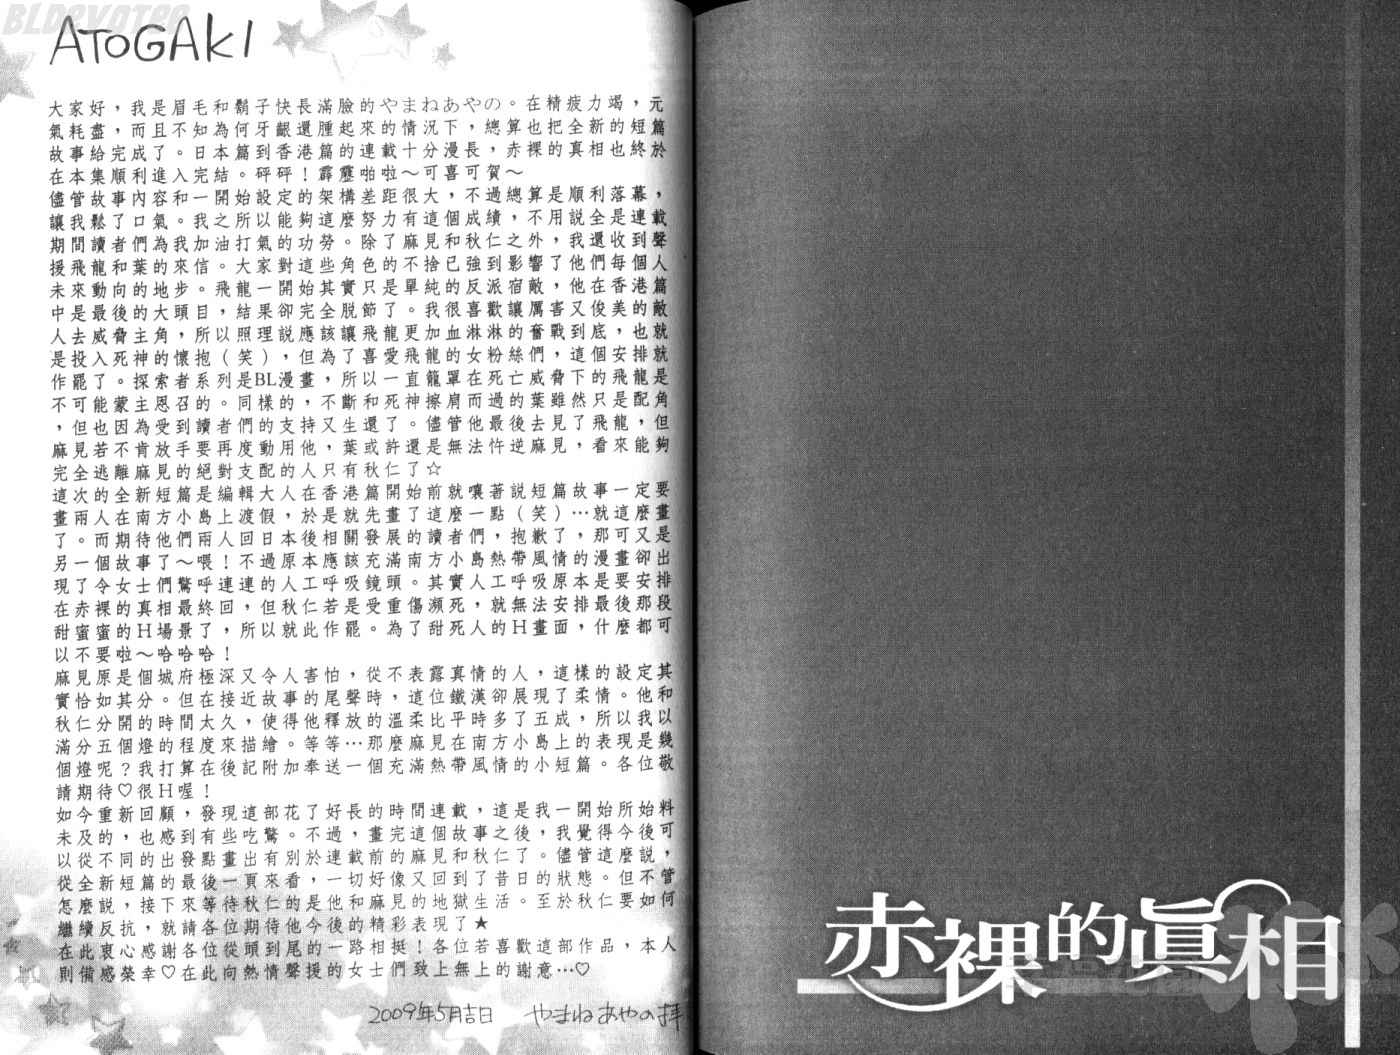 BLDevotee
ATOGAKI
大家好，我是眉毛和鬍子快長滿臉的やまねあやの。在精疲力竭，元
氣耗盡，而且不知為何牙齦還腫起來的情況下，總算也把全新的短篇
故事給完成了。日本篇到香港篇的連載十分漫長，赤裸的真相也終於
在本集順利進入完結。砰砰！霹靂啪啦～可喜可賀～
儘管故事內容和一開始設定的架構差距很大，不過總算是順利落幕，
讓我鬆了口氣。我之所以能夠這麼努力有這個成績，不用說全是連載
期間讀者們為我加油打氣的功勞。除了麻見和秋仁之外，我還收到聲
援飛龍和葉的來信。大家對這些角色的不捨已強到影響了他們每個人
未來動向的地步。飛龍一開始其實只是單純的反派宿敵，他在香港篇
中是最後的大頭目，結果卻完全脫節了。我很喜歡讓厲害又俊美的敵
人去威脅主角，所以照理說應該讓飛龍更加血淋淋的奮戰到底，也就
是投入死神的懷抱（笑），但為了喜愛飛龍的女粉絲們，這個安排就
作罷了。探索者系列是BL漫畫，所以一直籠罩在死亡威脅下的飛龍是
不可能蒙主恩召的。同樣的，不斷和死神擦肩而過的葉雖然只是配角
，但也因為受到讀者們的支持又生還了。儘管他最後去見了飛龍，但
麻見若不肯放手要再度動用他，葉或許還是無法忤逆麻見，看來能夠
完全逃離麻見的絕對支配的人只有秋仁了☆
這次的全新短篇是編輯大人在香港篇開始前就嚷著說短篇故事一定要
畫兩人在南方小島上渡假，於是就先畫了這麼一點（笑）…就這麼畫
了。而期待他們兩人回日本後相關發展的讀者們，抱歉了，那可又是
另一個故事了～喂！不過原本應該充滿南方小島熱帶風情的漫畫卻出
現了令女士們驚呼連連的人工呼吸鏡頭。其實人工呼吸原本是要安排
在赤裸的真相最終回，但秋仁若是受重傷瀕死，就無法安排最後那段
甜蜜蜜的H場景了，所以就此作罷。為了甜死人的H畫面，什麼都可
以不要啦～哈哈哈！
麻見原是個城府極深又令人害怕，從不表露真情的人，這樣的設定其
實恰如其分。但在接近故事的尾聲時，這位鐵漢卻展現了柔情。他和
秋仁分開的時間太久，使得他釋放的溫柔比平時多了五成，所以我以
滿分五個燈的程度來描繪。等等…那麼麻見在南方小島上的表現是幾
個燈呢？我打算在後記附加奉送一個充滿熱帶風情的小短篇。各位敬
請期待♡很H喔！
如今重新回顧，發現這部花了好長的時間連載，這是我一開始所始料
未及的，也感到有些吃驚。不過，畫完這個故事之後，我覺得今後可
以從不同的出發點畫出有別於連載前的麻見和秋仁了。儘管這麼說，
從全新短篇的最後一頁來看，一切好像又回到了昔日的狀態。但不管
怎麼說，接下來等待秋仁的是他和麻見的地獄生活。至於秋仁要如何
繼續反抗，就請各位期待他今後的精彩表現了★
在此衷心感謝各位從頭到尾的一路相挺！各位若喜歡這部作品，本人
則備感榮幸♡在此向熱情聲援的女士們致上無上的謝意…♡
2009年5月吉日　やまねあやの拝
赤裸的真相